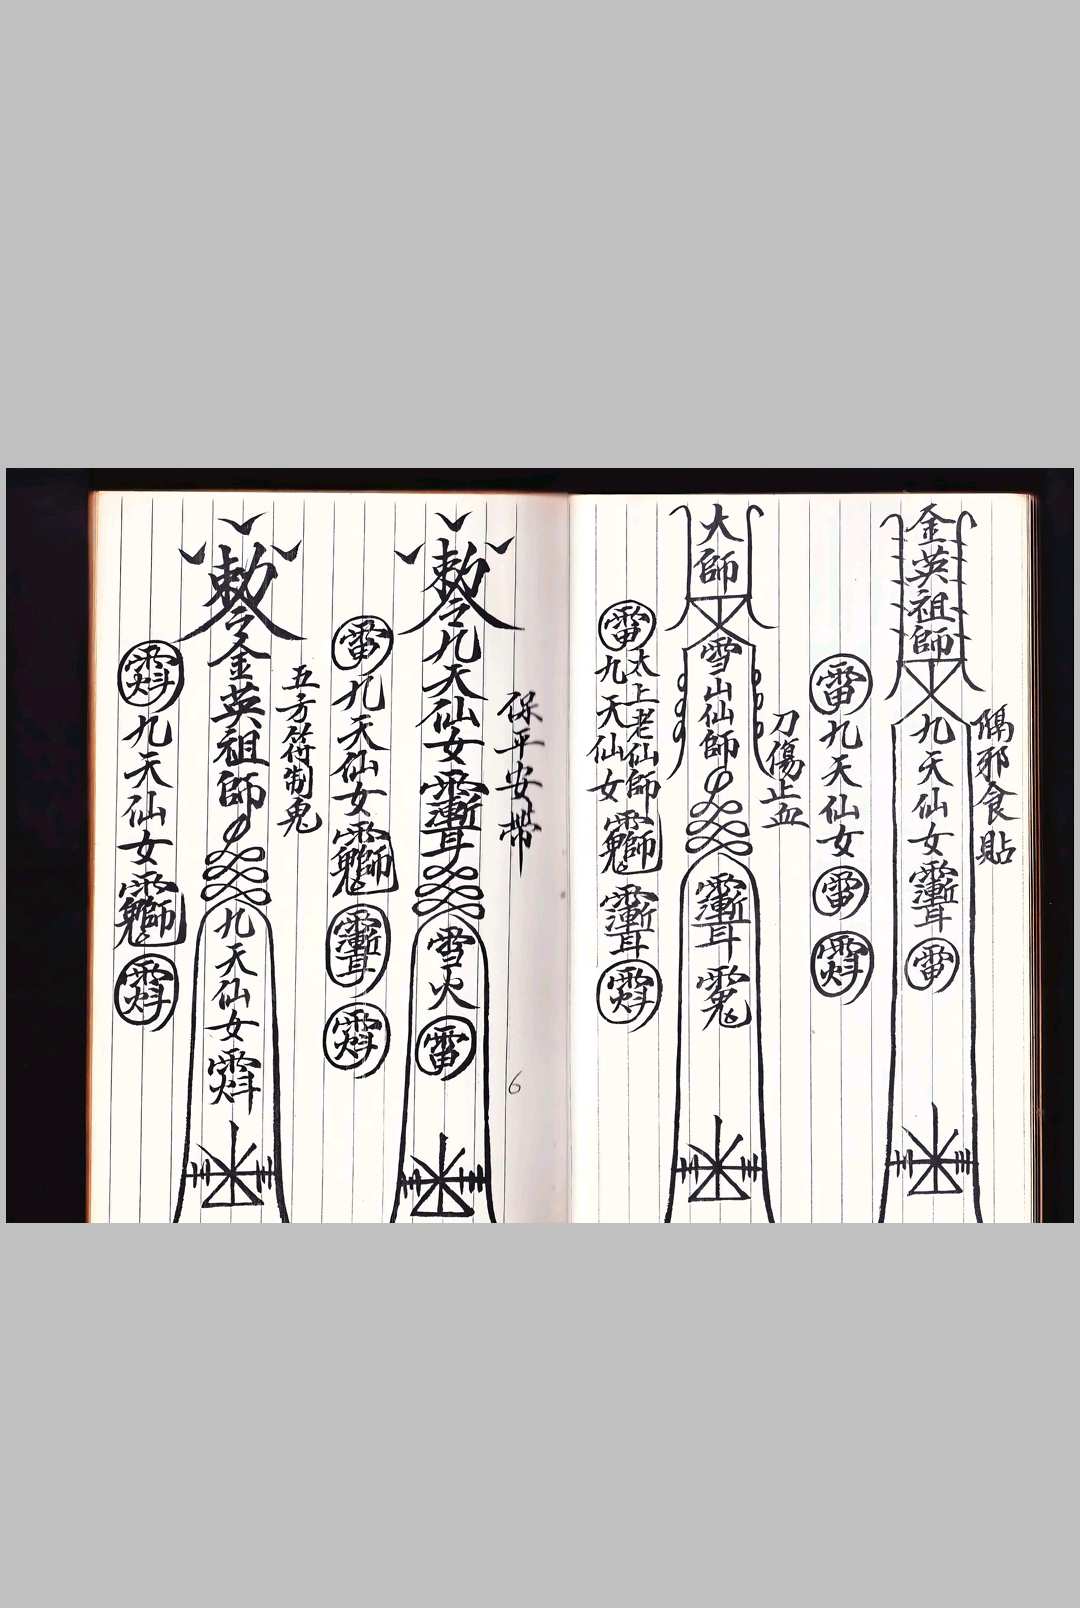 隔邪食貼
金英祖師
九天仙女
雷
雷九天仙女
雷
刀傷止血
大師
雪山仙師
太上老仙師
雷九天仙女
保平安帶
敕令九天仙女
雪火雷
雷九天仙女
五方符制鬼
敕令金英祖師
九天仙女
九天仙女
6